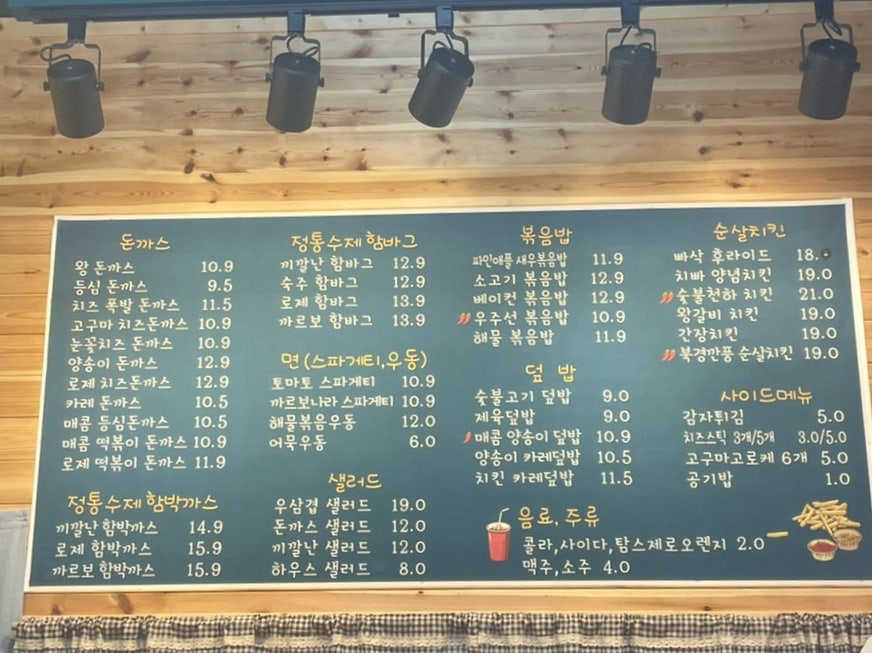 돈까스
왕 돈까스 10.9
등심 돈까스 9.5
치즈 폭발 돈까스 11.5
고구마 치즈돈까스 10.9
눈꽃치즈 돈까스 10.9
양송이 돈까스 12.9
로제 치즈돈까스 12.9
카레 돈까스 10.5
매콤 등심돈까스 10.5
매콤 떡볶이 돈까스 10.9
로제 떡볶이 돈까스 11.9
정통수제 함박까스
끼깔난 함박까스 14.9
로제 함박까스 15.9
까르보 함박까스 15.9
정통수제 함바그
끼깔난 함바그 12.9
숙주 함바그 12.9
로제 함바그 13.9
까르보 함바그 13.9
면 (스파게티,우동)
토마토 스파게티 10.9
까르보나라 스파게티 10.9
해물볶음우동 12.0
어묵우동 6.0
샐러드
우삼겹 샐러드 19.0
돈까스 샐러드 12.0
끼깔난 샐러드 12.0
하우스 샐러드 8.0
볶음밥
파인애플 새우볶음밥 11.9
소고기 볶음밥 12.9
베이컨 볶음밥 12.9
우주선 볶음밥 10.9
해물 볶음밥 11.9
덮밥
숯불고기 덮밥 9.0
제육덮밥 9.0
매콤 양송이 덮밥 10.9
양송이 카레덮밥 10.5
치킨 카레덮밥 11.5
순살치킨
빠삭 후라이드 18.
치빠 양념치킨 19.0
숯불천하 치킨 21.0
왕갈비 치킨 19.0
간장치킨 19.0
북경깐풍 순살치킨 19.0
사이드메뉴
감자튀김 5.0
치즈스틱 3개/5개 3.0/5.0
고구마고로케 6개 5.0
공기밥 1.0
음료, 주류
콜라,사이다,탐스제로오렌지 2.0
맥주,소주 4.0